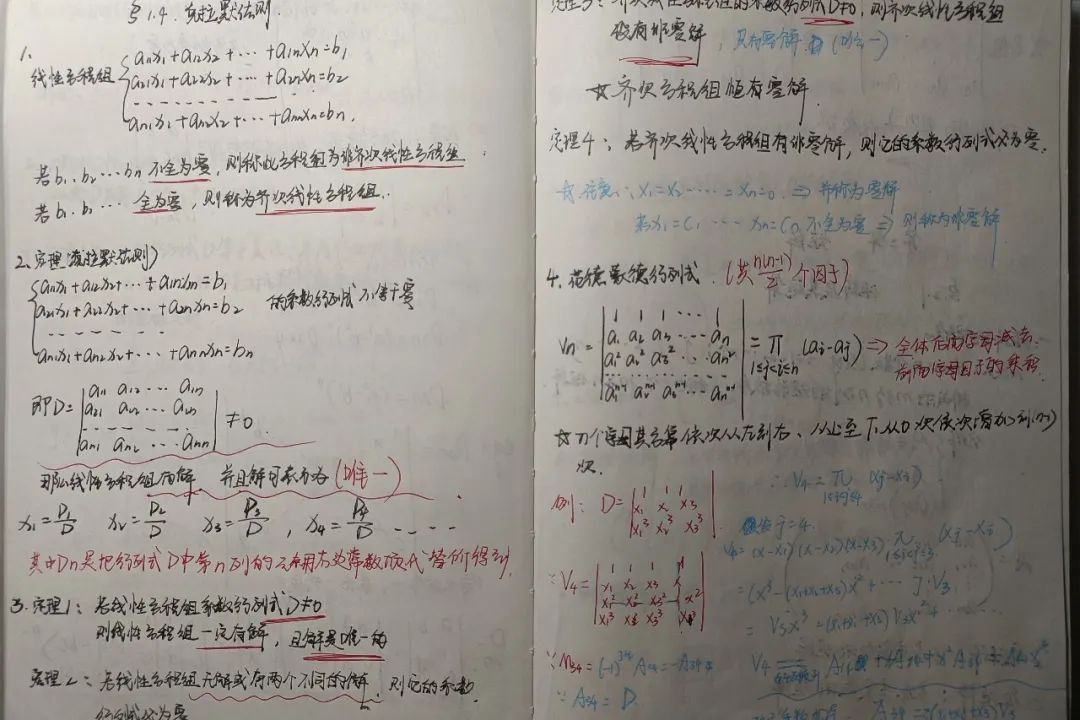 §1.4. 克拉默法则.
1.
线性方程组 { a₁₁x₁+a₁₂x₂+⋯+a₁ₙxₙ=b₁
a₂₁x₁+a₂₂x₂+⋯+a₂ₙxₙ=b₂
- - - - - - - -
aₙ₁x₁+aₙ₂x₂+⋯+aₙₙxₙ=bₙ.
若b₁.b₂⋯bₙ不全为零,则称此方程组为非齐次线性方程组
若b₁.b₂⋯全为零,则称为齐次线性方程组.
2.定理(克拉默法则)
{ a₁₁x₁+a₁₂x₂+⋯+a₁ₙxₙ=b₁
a₂₁x₁+a₂₂x₂+⋯+a₂ₙxₙ=b₂ 的系数行列式不等于零
- - - - - -
aₙ₁x₁+aₙ₂x₂+⋯+aₙₙxₙ=bₙ
即D= | a₁₁ a₁₂ ⋯ a₁ₙ
a₂₁ a₂₂ ⋯ a₂ₙ
- - - - - -
aₙ₁ aₙ₂ ⋯ aₙₙ | ≠0.
那么线性方程组有解 并且解可表示为(唯一)
x₁=D₁/D x₂=D₂/D x₃=D₃/D , x₄=D₄/D - - - -
其中Dn是把行列式D中第n列的元素用右边常数项代替所得到.
3.定理1:若线性方程组系数行列式D≠0
则线性方程组一定有解,且解是唯一的
定理2:若线性方程组无解或有两个不同的解,则它的系数
行列式必为零
定理3:齐次线性方程组的系数行列式D≠0,则齐次线性方程组
没有非零解,只有零解(唯一)
☆齐次方程组恒有零解.
定理4:若齐次线性方程组有非零解,则它的系数行列式必为零.
☆注意:x₁=x₂⋯⋯=xₙ=0.⇒并称为零解
若x₁=C₁⋯xₙ=Cₙ不全为零⇒则称为非零解
4.范德蒙德行列式.(共n(n-1)/2个因子)
Vn= | 1 1 1 ⋯ 1
a₁ a₂ a₃ ⋯ aₙ
a₁² a₂² a₃² ⋯ aₙ² | =π (aᵢ-aⱼ) ⇒全体后面字母减去
1≤j<i≤n 前面字母因子的乘积.
a₁ⁿ⁻¹ a₂ⁿ⁻¹ a₃ⁿ⁻¹ ⋯ aₙⁿ⁻¹
☆n个字母其方幂依次从左到右、从上至下从0次依次增加到(n-1)
次.
例:D= | 1 1 1
x₁ x₂ x₃
x₁³ x₂³ x₃³ |
∵V₄= | 1 1 1 1
x₁ x₂ x₃ x
x₁² x₂² x₃² x²
x₁³ x₂³ x₃³ x³ |
∵A₃₄=D
∴V₄=π
当j=4.
V₄=(x-x₁)(x-x₂)(x-x₃)π
=(x³-(x₁+x₂+x₃)x²+⋯ ]·V₃